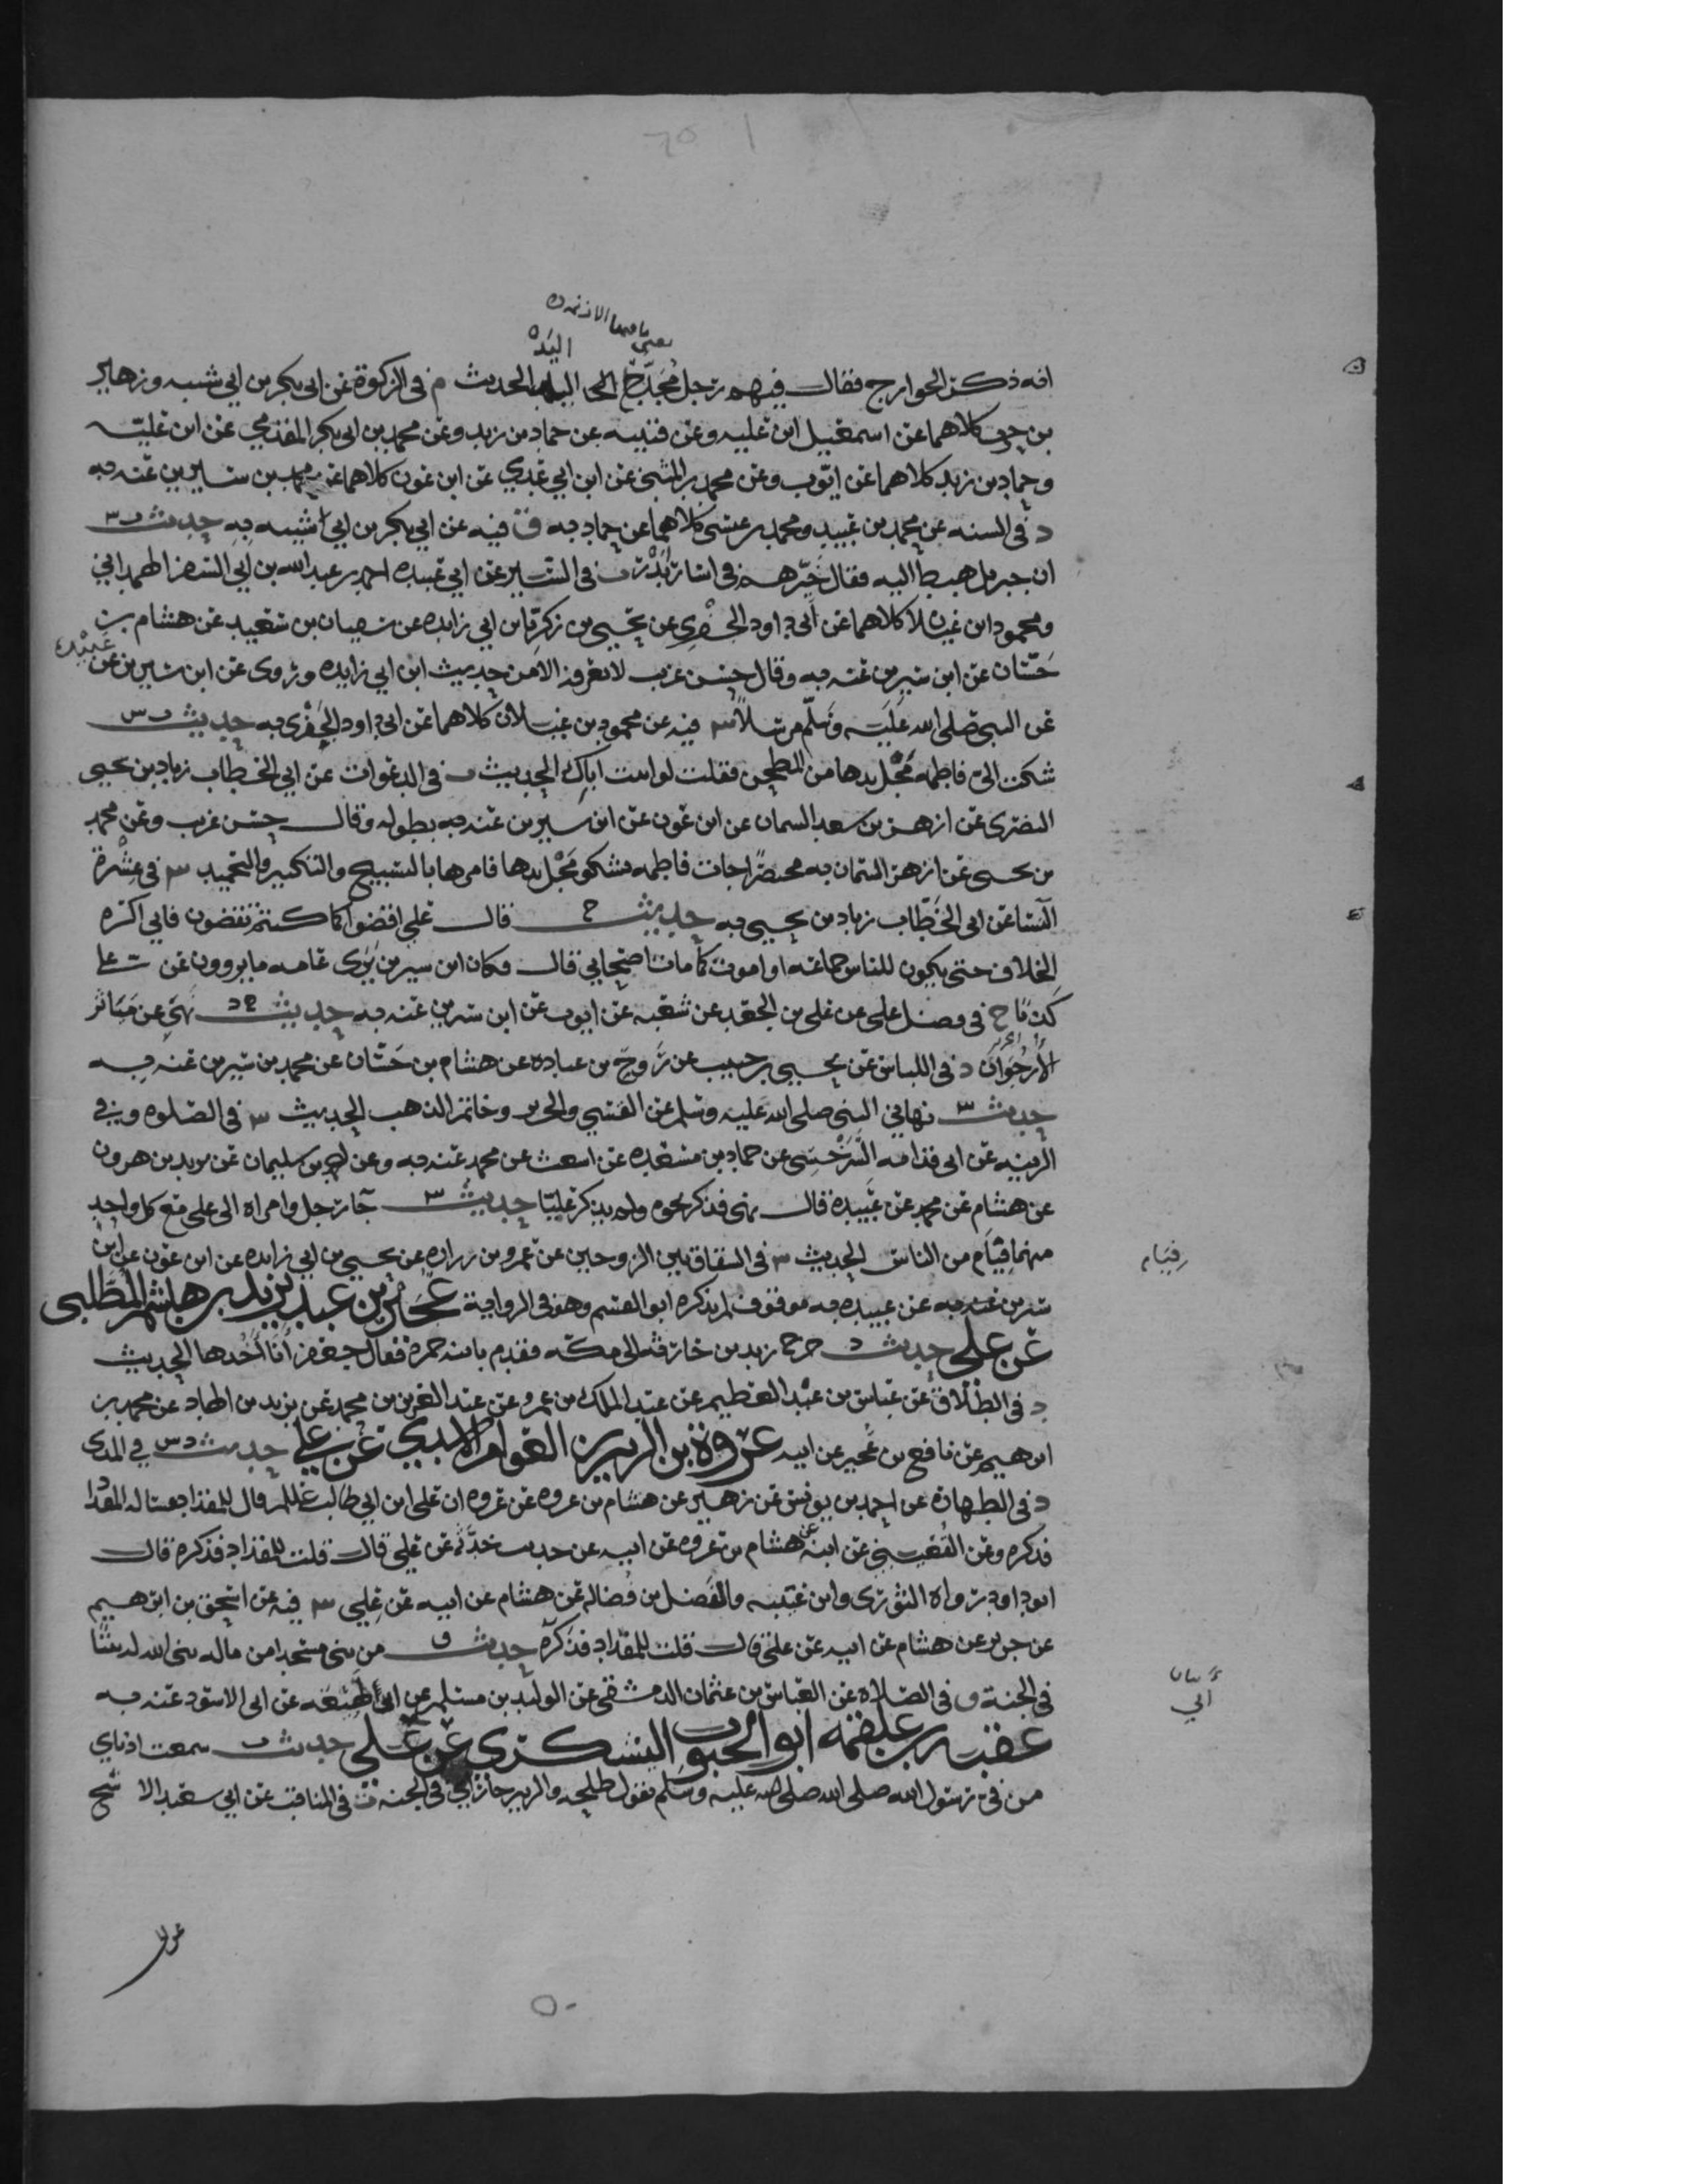 اليد
انه ذكر الخوارج فقال فيهم رجل مخدج اليد الحديث م في الزكوة عن ابي بكر بن ابي شيبه وزهير
بن حرب كلاهما عن اسمعيل ابن عليه وعن قتيبه عن حماد بن زيد وعن محمد بن ابي بكر المقدمي عن ابن عليه
وحماد بن زيد كلاهما عن ايوب وعن محمد بن المثنى عن ابن ابي عدي عن ابن عون كلاهما عن محمد بن سيرين عنه به
د في السنه عن محمد بن عبيد ومحمد بن عيسى كلاهما عن حماد به ق فيه عن ابي بكر بن ابي شيبه به حديث ت س
ان جبريل هبط اليه فقال خيرهم في اسارى بدر ت في السير عن ابي عبيده احمد بن عبد الله بن ابي السفر الهمداني
ومحمود ابن غيلان كلاهما عن ابي داود الحفري عن يحيى بن زكريا بن ابي زايده عن سفيان بن سعيد عن هشام بن
حسان عن ابن سيرين عنه به وقال حسن غريب لا نعرفه الا من حديث ابن ابي زايده وروى عن ابن سيرين عن عبيدة
عن النبي صلى الله عليه وسلم مرسلا س فيه عن محمود بن غيلان كلاهما عن ابي داود الحفري به حديث ت س
شكت الي فاطمه مجل يدها من الطحين فقلت لو اتيت اباك الحديث ت في الدعوات عن ابي الخطاب زياد بن يحيى
البصري عن ازهر بن سعد السمان عن ابن عون عن ابن سيرين عنه به بطوله وقال حسن غريب وعن محمد
بن يحيى عن ازهر السمان به مختصرا جات فاطمه تشكو مجل يدها فامرها بالتسبيح والتكبير والتحميد س في عشرة
النسا عن ابي الخطاب زياد بن يحيى به حديث خ قال علي اقضوا كما كنتم تقضون فاني اكره
الخلاف حتى يكون للناس جماعه او اموت كما مات اصحابي قال فكان ابن سيرين يرى عامه ما يروون عن علي
كذبا خ في فضل علي عن علي بن الجعد عن شعبه عن ايوب عن ابن سيرين عنه به حديث د نهى عن مياثر
الأرجوان د في اللباس عن يحيى بن حبيب عن روح بن عباده عن هشام بن حسان عن محمد بن سيرين عنه به
حديث س نهاني النبي صلى الله عليه وسلم عن القسي والحرير وخاتم الذهب الحديث س في الصلوه وفي
الزينه عن ابي قدامه السرخسي عن حماد بن مسعده عن اشعث عن محمد عنه به وعن احمد بن سليمان عن يزيد بن هرون
عن هشام عن محمد عن عبيدة قال نهى فذكر نحوه ولم يذكر عليا حديث س جا رجل وامراه الى علي مع كل واحد
منهما فئام من الناس الحديث س في الشقاق بين الزوجين عن عمرو بن زراره عن يحيى بن ابي زايده عن ابن عون عن ابن
سيرين عنه به عن عبيده به موقوف لم يذكره ابو القسم وهو في الرواية عجير بن عبد يزيد بن هاشم المطلبي
عن علي حديث د خرج زيد بن حارثه الى مكه فقدم بابنه حمزه فقال جعفر أنا أخذها الحديث
د في الطلاق عن عباس بن عبد العظيم عن عبد الملك بن عمرو عن عبد العزيز بن محمد عن يزيد بن الهاد عن محمد بن
ابرهيم عن نافع بن عجير عن ابيه عروة بن الزبير بن العوام الاسدي عن علي حديث د س في المذي
د في الطهارة عن احمد بن يونس عن زهير عن هشام بن عروه عن عروه ان علي ابن ابي طالب قال للمقداد فساله المقداد
فذكره وعن القعنبي عن ابيه عن هشام بن عروه عن ابيه عن حديث حدثه عن علي قال قلت للمقداد فذكره قال
ابو داود رواه الثوري وابن عيينه والمفضل بن فضاله عن هشام عن ابيه عن علي س فيه عن اسحق بن ابرهيم
عن جرير عن هشام عن ابيه عن علي قال قلت للمقداد فذكره حديث ق من بنى مسجدا من ماله بنى الله له بيتا
في الجنة ق في الصلاه عن العباس بن عثمان الدمشقي عن الوليد بن مسلم عن ابن لهيعه عن ابي الاسود عنه به
عقبة بن علقمه ابو الجنوب اليشكري عن علي حديث ت سمعت اذناي
من في رسول الله صلى الله صلى الله عليه وسلم يقول طلحه والزبير جاراي في الجنه ت في المناقب عن ابي سعيد الاشج